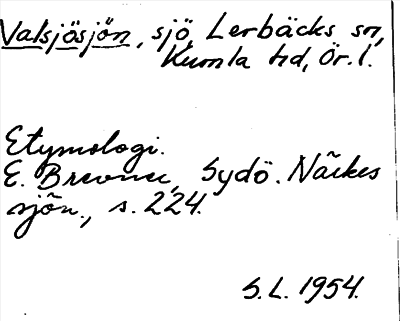 Valsjösjön, sjö, Lerbäcks sn,
Kumla hd, Ör. l.
Etymologi.
E. Brevner, Sydö. Närkes
sjön., s. 224.
S.L. 1954.